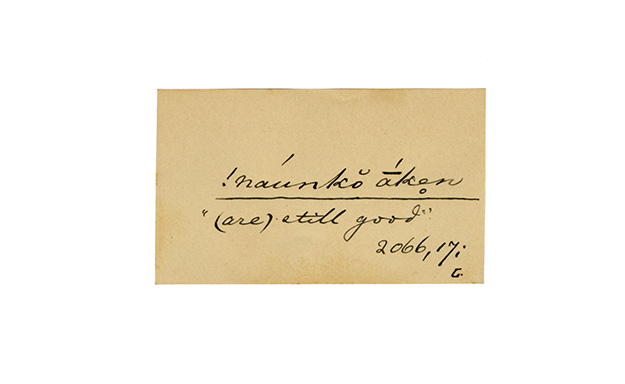 !naúnkŏ ā́kẹn
"(are) still good"
2066, 17;
G.